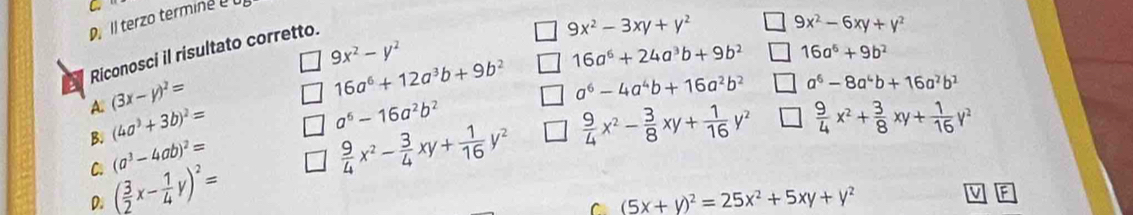 D. Il terzo termine è
Riconosci il risultato corretto.
A. (3x − y)² = □ 9x² − y² □ 9x² − 3xy + y² □ 9x² − 6xy + y²
B. (4a³ + 3b)² = □ 16a⁶ + 12a³b + 9b² □ 16a⁶ + 24a³b + 9b² □ 16a⁶ + 9b²
C. (a³ − 4ab)² = □ a⁶ − 16a²b² □ a⁶ − 4a⁴b + 16a²b² □ a⁶ − 8a⁴b + 16a²b²
D. (3/2 x − 1/4 y)² = □ 9/4 x² − 3/4 xy + 1/16 y² □ 9/4 x² − 3/8 xy + 1/16 y² □ 9/4 x² + 3/8 xy + 1/16 y²
C. (5x + y)² = 25x² + 5xy + y² V F